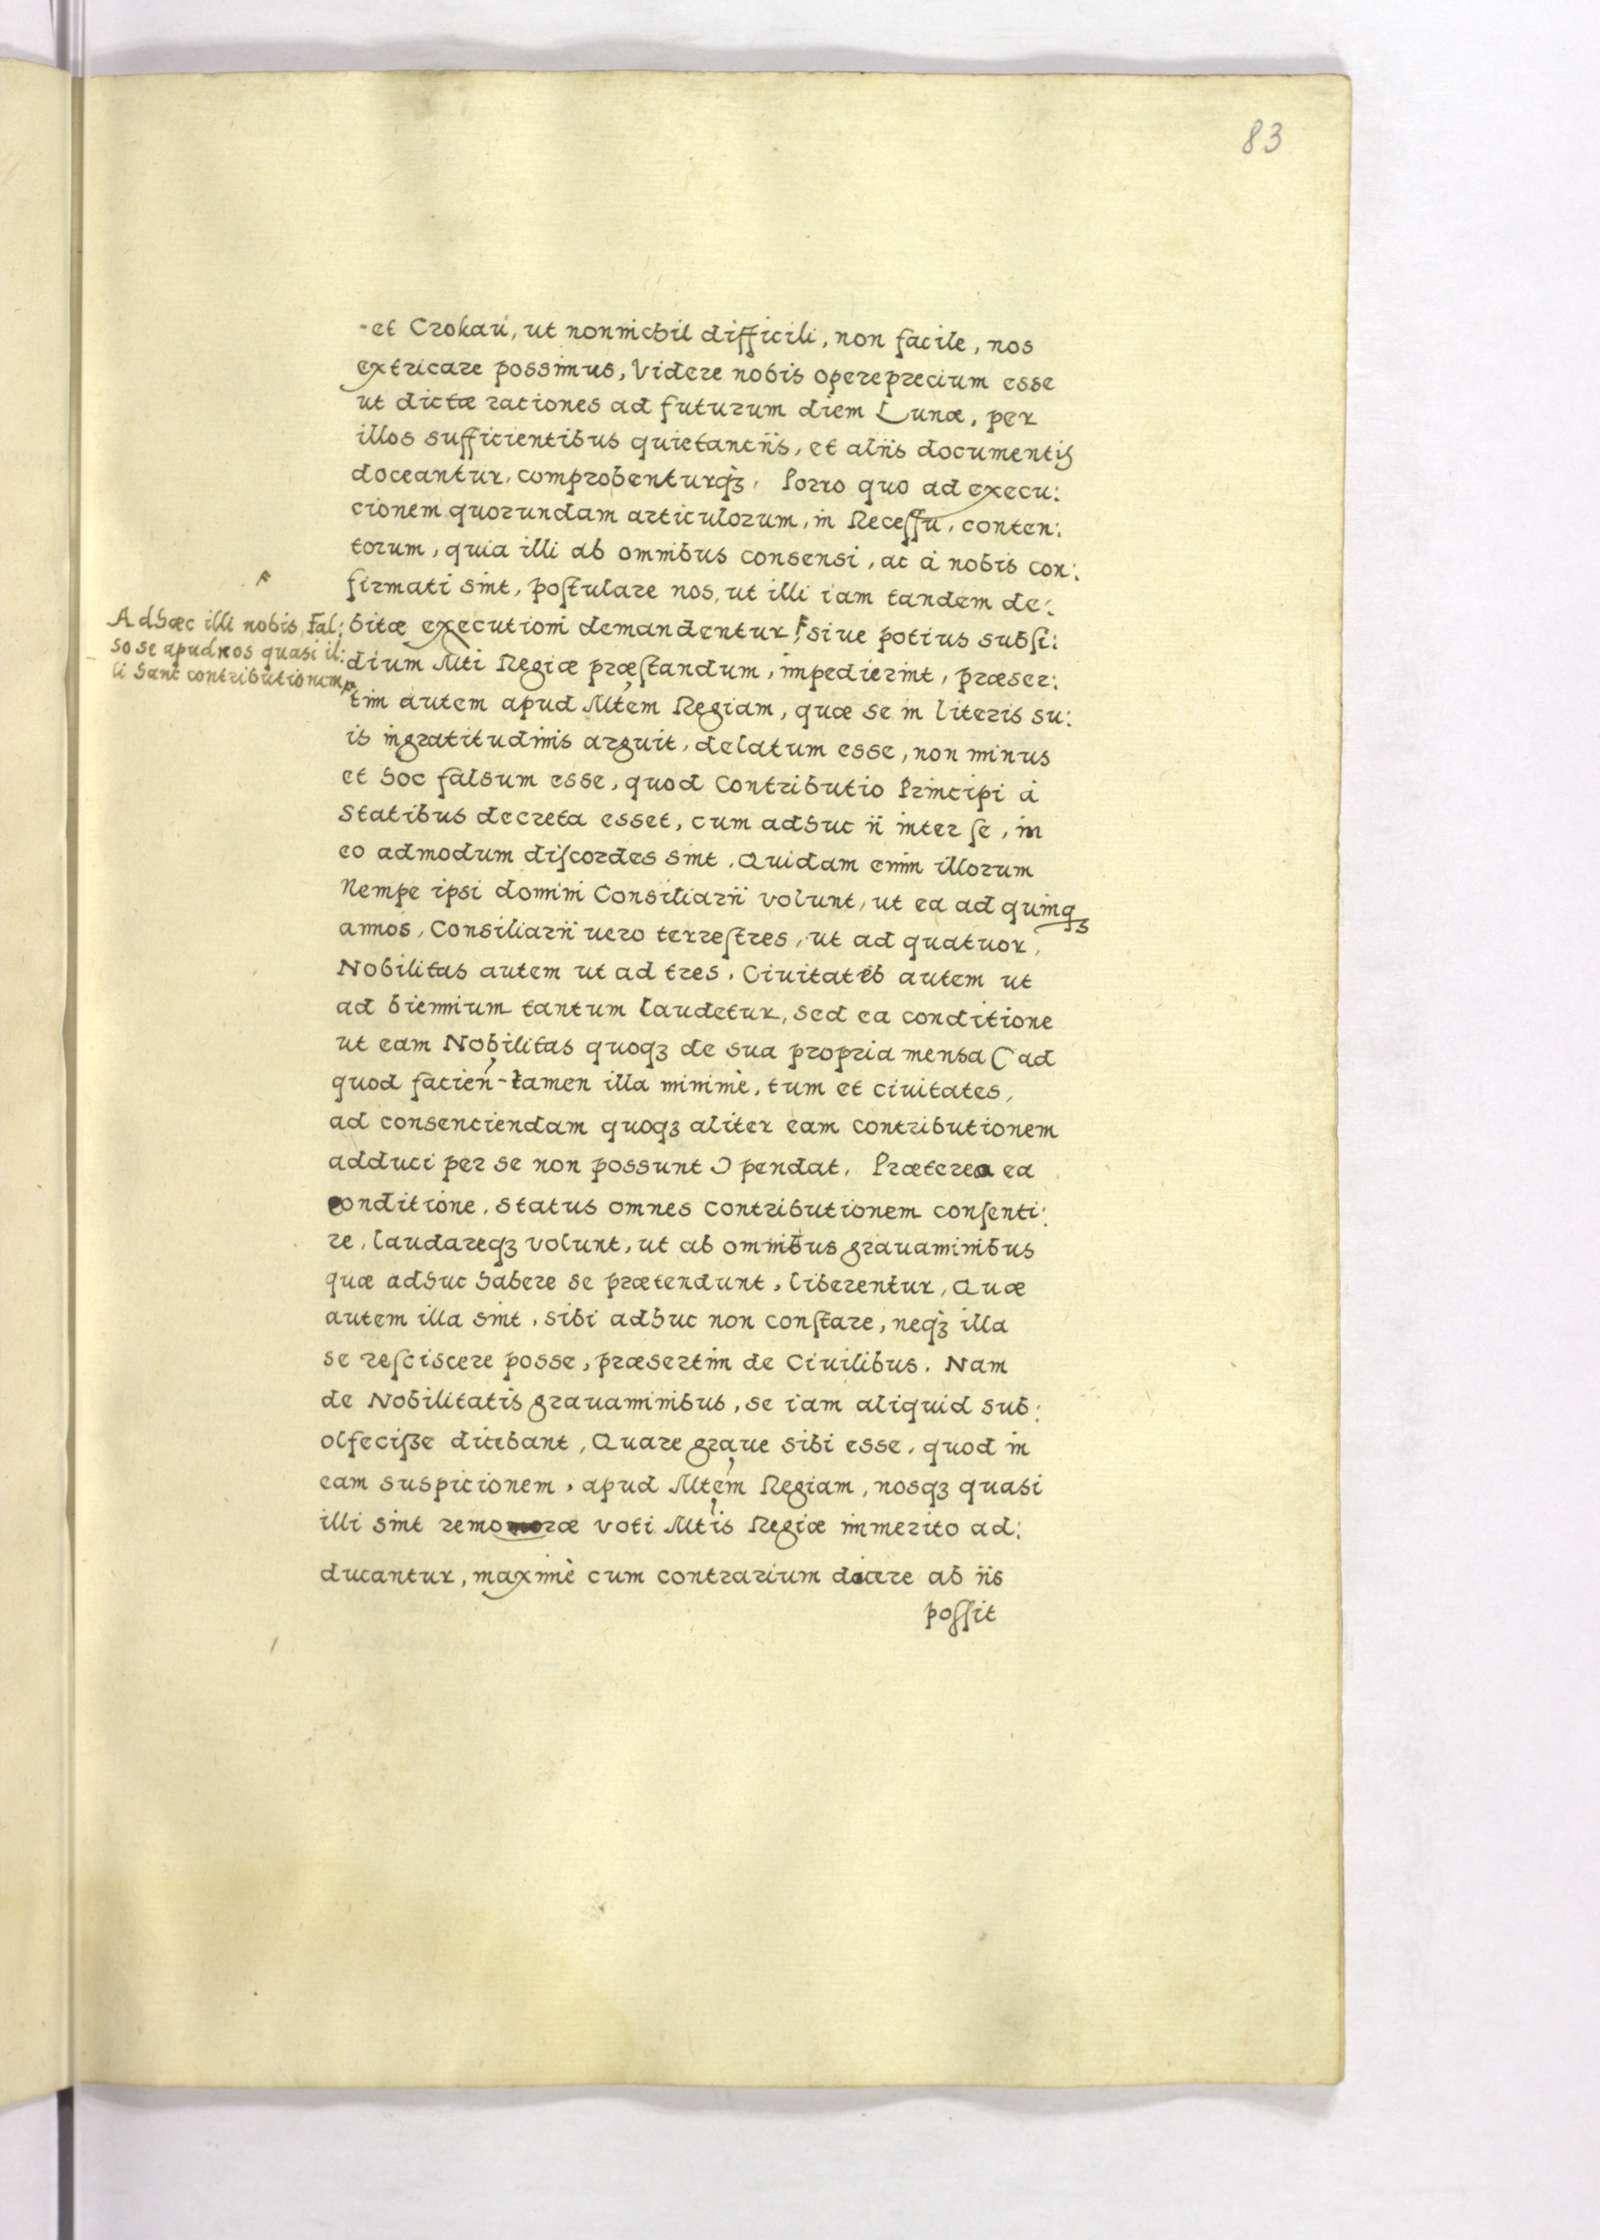 83
-et Crokaú, ut nonnichil difficili, non facile, nos
extricare possimus, Videre nobis opereprecium esse
ut dictæ raciones ad futurum diem Lunæ, per
illos sufficientibus quietanciis, et aliis documentis
doceantur, comprobenturqꝫ, Porro quo ad execu:
cionem quorundam articulorum, in Receſſu, conten:
torum, quia illi ab omnibus consensi, ac à nobis con:
firmati sint, poſtulare nos, ut illi iam tandem de:
bitæ executioni demandentur, siue potius subſi:
Adhæc illi nobis Fal:
so se apud nos quasi il:
li hanc contributionem,
dium Mti Regiæ præſtandum, impedierint, præser:
tim autem apud Mtem Regiam, quæ se in literis su:
is ingratitudinis arguit, delatum esse, non minus
et hoc falsum esse, quod Contributio Principi à
Statibus decreta esset, cum adhuc ii inter ſe, in
eo admodum diſcordes sint. Quidam enim illorum
Nempe ipsi domini Consiliarii volunt, ut ea ad quinqꝫ
annos, Consiliarii uero terreſtres, ut ad quatuor,
Nobilitas autem ut ad tres, Ciuitates autem ut
ad biennium tantum laudetur, sed ea conditione
ut eam Nobilitas quoqꝫ de sua propria mensa (ad
quod facien-tamen illa minimè, tum et ciuitates,
ad consenciendam quoqꝫ aliter eam contributionem
adduci per se non possunt) pendat, Præterea ea
conditione, status omnes contributionem conſenti:
re, laudareqꝫ volunt, ut ab omnibus grauaminibus
quæ adhuc habere se prætendunt, liberentur, Quæ
autem illa sint, sibi adhuc non conſtare, neqꝫ illa
se reſciscere posse, præsertim de Ciuilibus. Nam
de Nobilitatis grauaminibus, se iam aliquid sub:
olfecisſe dicebant, Quare graue sibi esse, quod in
eam suspicionem, apud Mtem Regiam, nosqꝫ quasi
illi sint remoræ voti Mtis Regiæ immerito ad:
ducantur, maximè cum contrarium docere ab iis
poſſit